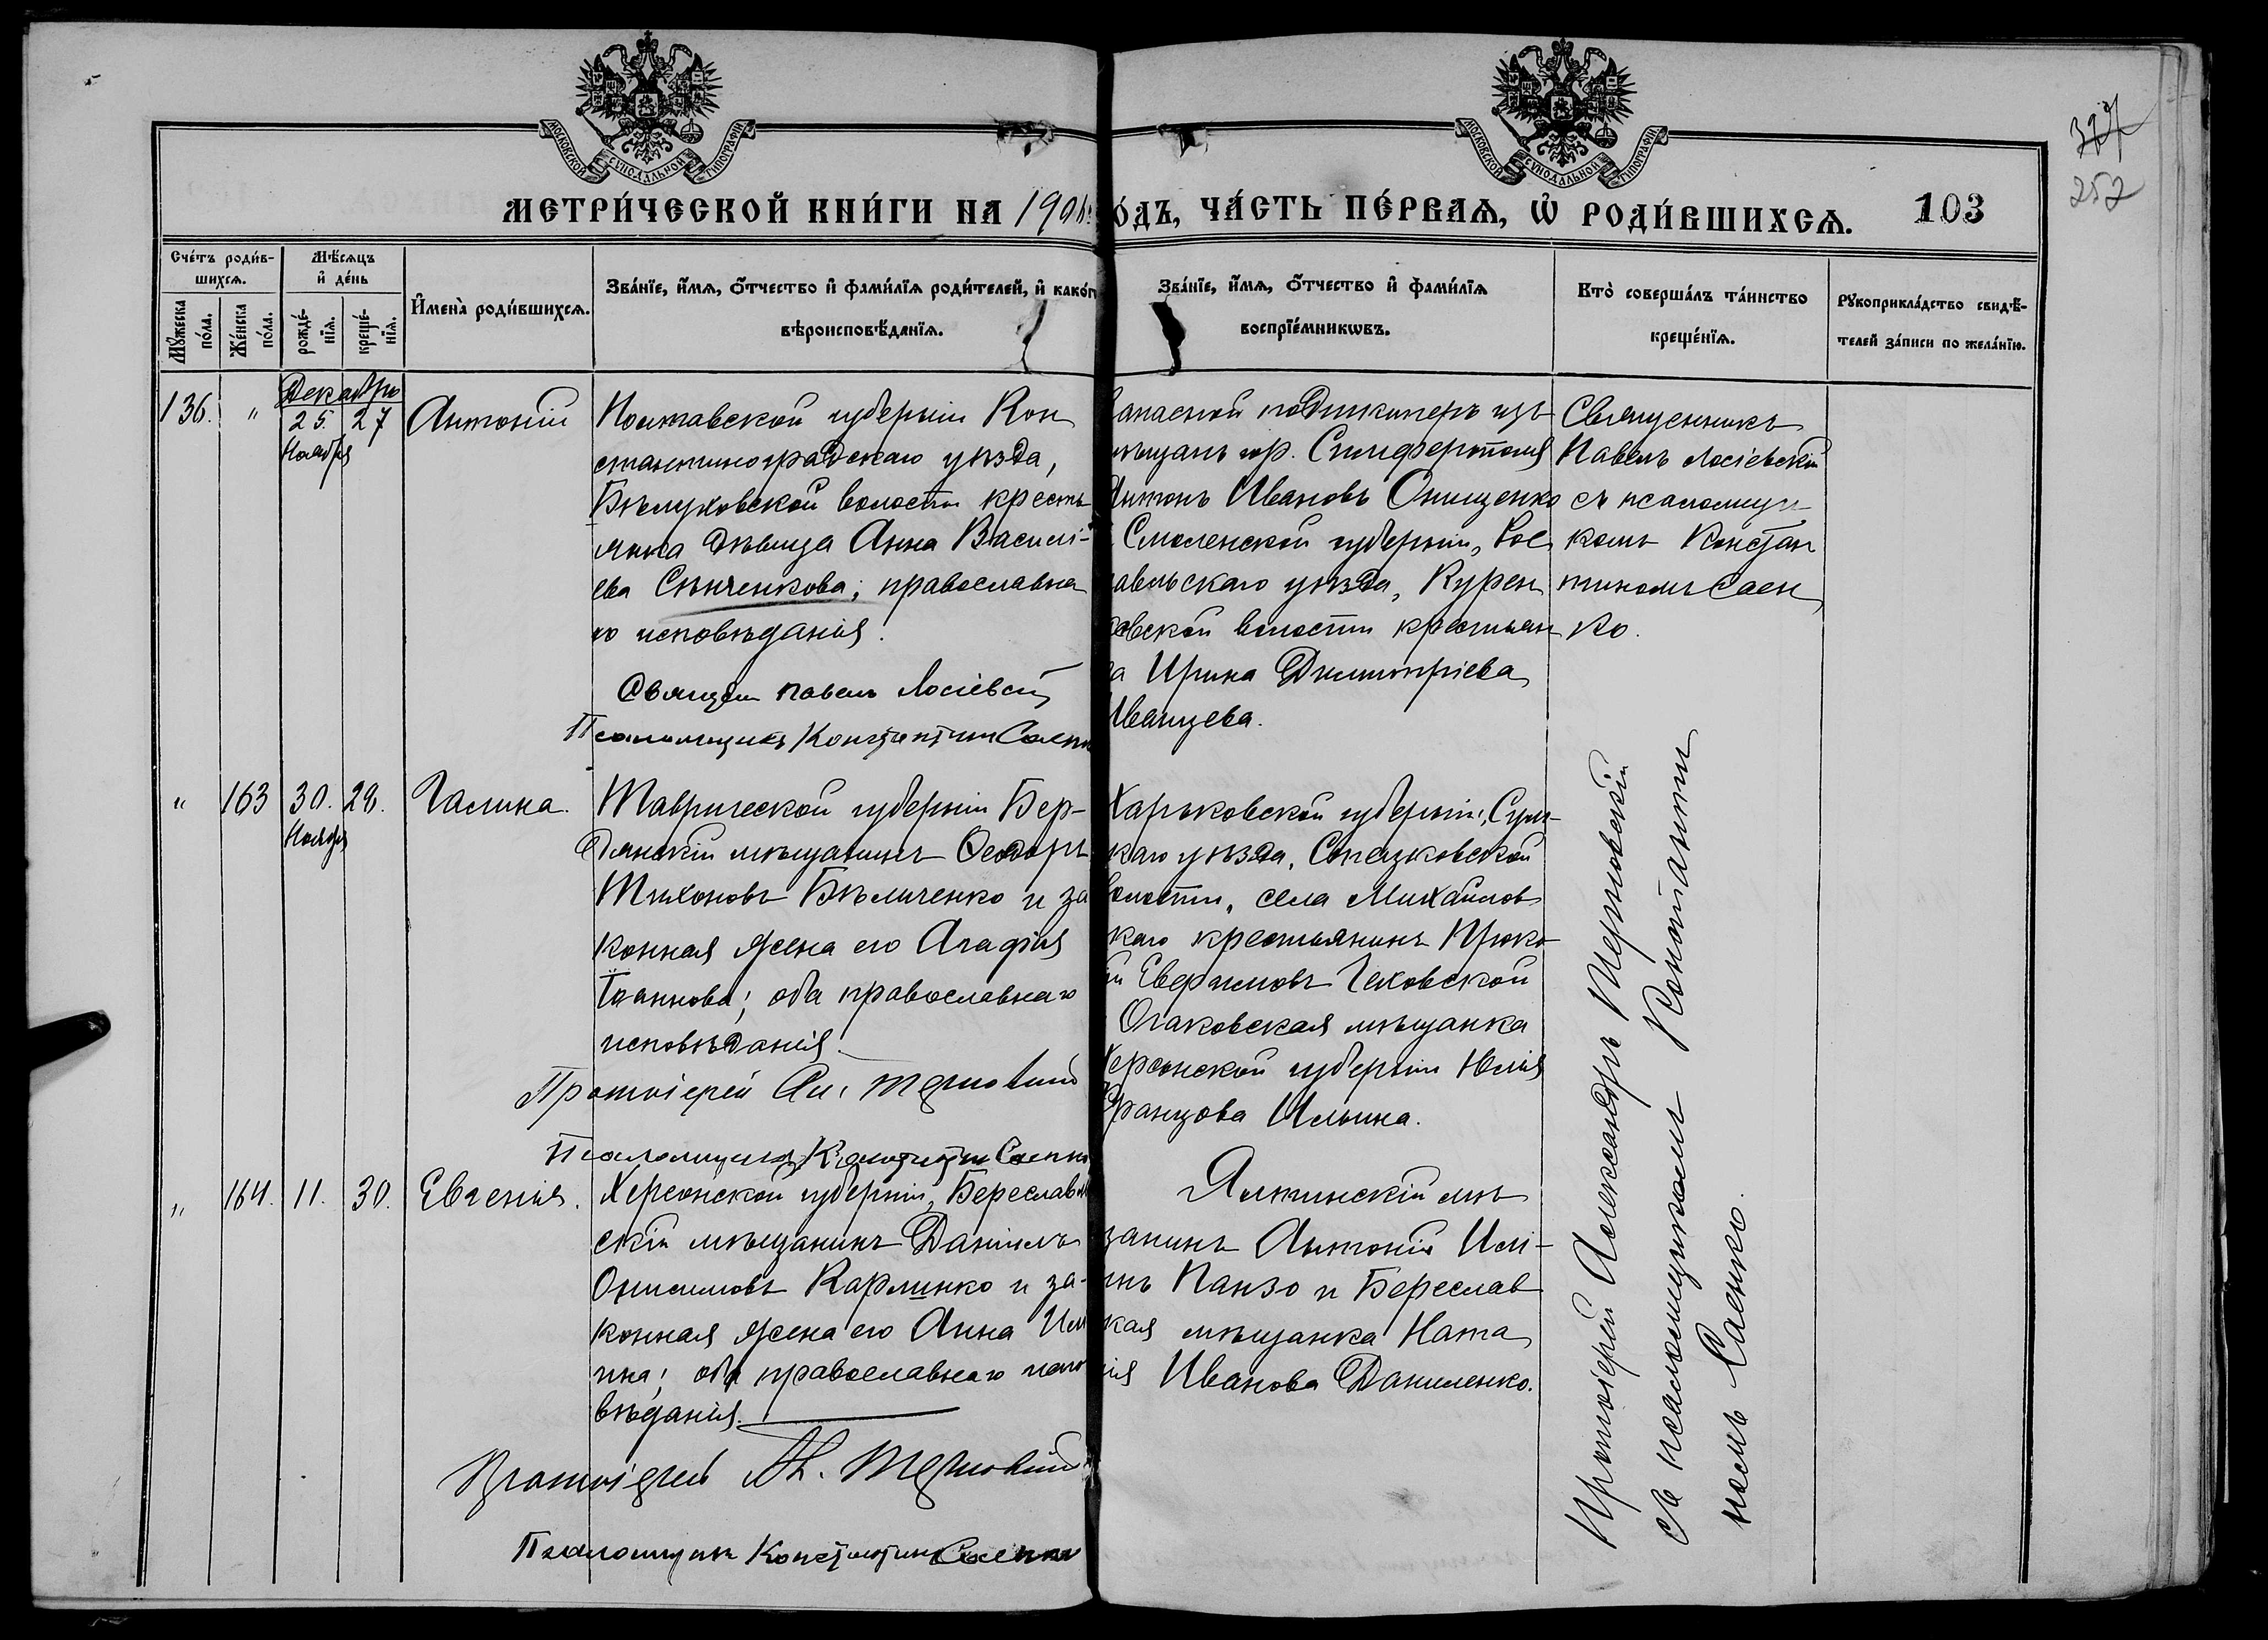 МОСКОВСКОЙ СѴНОДАЛЬНОЙ ТИПОГРАФІИ
МОСКОВСКОЙ СѴНОДАЛЬНОЙ ТИПОГРАФІИ
252
МЕТРИ́ЧЕСКОЙ КНИ́ГИ НА
О́ДЪ, ЧА́СТЬ ПЕ́РВАѦ, Ѡ҆ РОДИ́ВШИХСѦ. 103
Сче́тъ роди́в-
шихсѧ.
Мꙋ́жеска по́ла.
Же́нска по́ла.
Мѣ́сѧцъ
и҆ де́нь
рожде́-
нїѧ.
креще́-
нїѧ.
И҆мена̀ роди́вшихсѧ.
Зва́нїе, и҆́мѧ, о҆́тчество и҆ фами́лїѧ роди́телей, и҆ како́г
вѣроисповѣ́данїѧ.
Зва́нїе, и҆́мѧ, о҆́тчество и҆ фами́лїѧ
воспрїе́мникѡвъ.
Кто̀ соверша́лъ та́инство
креще́нїѧ.
Рꙋкоприкла́дство свидѣ́-
телей за́писи по жела́нїю.
Декабрь
136. " 25. 27 Антоній
Ноября
Полтавской губерніи Кон
стантиноградскаго уѣзда,
Бѣлуховской волости кресть
янка дѣвица Анна Василі-
ева Синченкова; православна
го исповѣданія.
Священ Павелъ Лосіевскій
Псаломщикъ Константин Саенко
апасной подшкиперъ изъ
мѣщанъ гор. Симферополя
Антонъ Ивановъ Онищенко
Смоленской губерніи, Рос
авльскаго уѣзда, Курен
овской волости крестьян
а Ирина Димитріева
Иванцева.
Священникъ
Павелъ Лосіевскій
съ псаломщи
комъ Констан
тиномъ Саен
ко.
" 163 30. 28. Галина.
Ноября
Таврической губерніи Бер-
дянскій мѣщанинъ Ѳеодоръ
Тихоновъ Бѣличенко и за
конная жена его Агафія
Іоаннова; оба православнаго
исповѣданія.
Протоіерей Ал. Терновскій
Псаломщикъ Константин Саенко
Харьковской губерніи, Сум-
каго уѣзда,
волости, села Михайлов
каго крестьянинъ Проко
ій Евфимовъ Чеховской
Очаковская мѣщанка
Херсонской губерніи Юлія
Францова Ильина.
" 164. 11. 30. Евгенія.
Херсонской губерніи, Береслав
скій мѣщанинъ Даніилъ
Онисимовъ Карлинко и за-
конная жена его Анна Иль
ина; оба православнаго испо
вѣданія.
Протоіерей Ал. Терновскій
Псаломщикъ Константин Саенко
Ялтинскій мѣ
щанинъ Антоній Илі-
инъ Панзо и Береслав
кая мѣщанка Ната
лія Иванова Даниленко.
Протоіерей Александръ Терновскій
съ псаломщикомъ Константи
номъ Саенко.